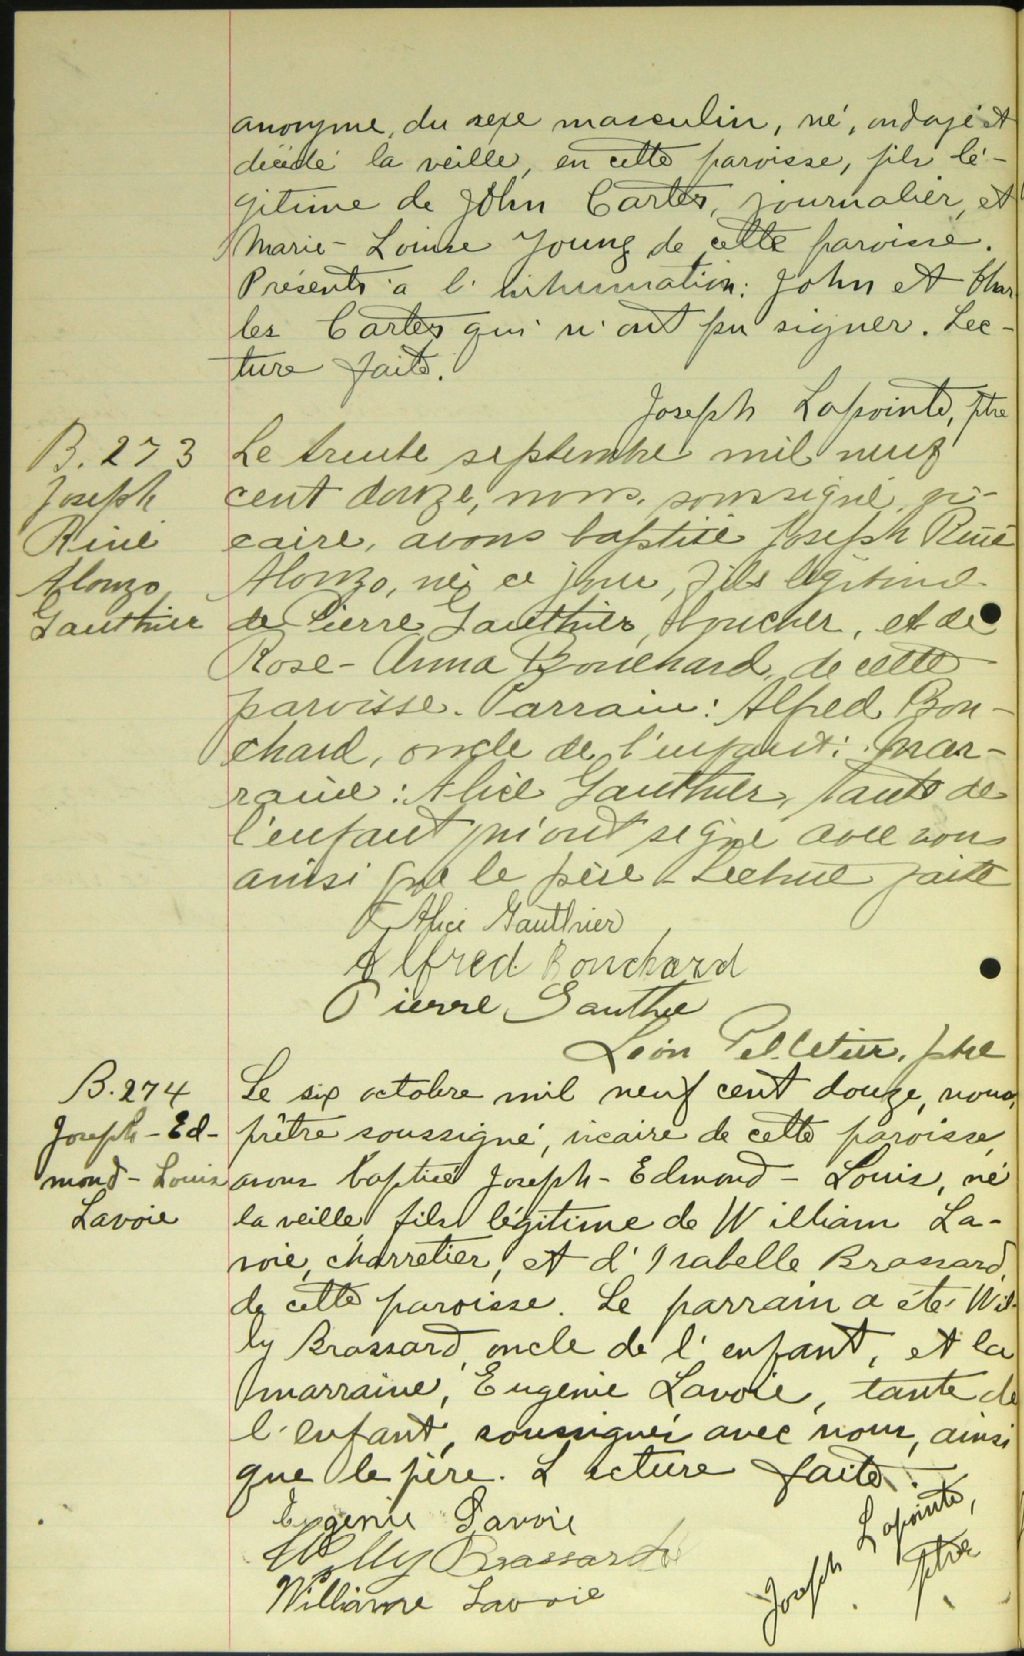 anonyme, du sexe masculin, né, ondoyé et
décédé la veille, en cette paroisse, fils lé-
gitime de John Carter, journalier, et
Marie-Louise Young de cette paroisse.
Présents à l'inhumation: John et Char
les Carter qui n'ont pu signer. Lec-
ture faite.
Joseph Lapointe, ptre
B. 273
Joseph
René
Alonzo
Gauthier
Le trente septembre mil neuf
cent douze, nous, soussigné, vi-
caire, avons baptisé Joseph René
Alonzo, né ce jour, fils légitime
de Pierre Gauthier, boucher, et de
Rose-Anna Bouchard, de cette
paroisse. Parrain: Alfred Bou-
chard, oncle de l'enfant; mar-
raine: Alice Gauthier, tante de
l'enfant qui ont signé avec nous
ainsi que le père. Lecture faite
Alice Gauthier
Alfred Bouchard
Pierre Gauthie
Léon Pelletier, ptre
B. 274
Joseph-Ed-
mond-Louis
Lavoie
Le six octobre mil neuf cent douze, nous,
prêtre soussigné, vicaire de cette paroisse,
avons baptisé Joseph-Edmond-Louis, né
la veille, fils légitime de William La-
voie, charretier, et d'Isabelle Brassard,
de cette paroisse. Le parrain a été Wil-
ly Brassard, oncle de l'enfant, et la
marraine, Eugenie Lavoie, tante de
l'enfant, soussignés avec nous, ainsi
que le père. Lecture faite.
Eugenie Lavoie
Willy Brassard
Williame Lavoie
Joseph Lapointe,
ptre